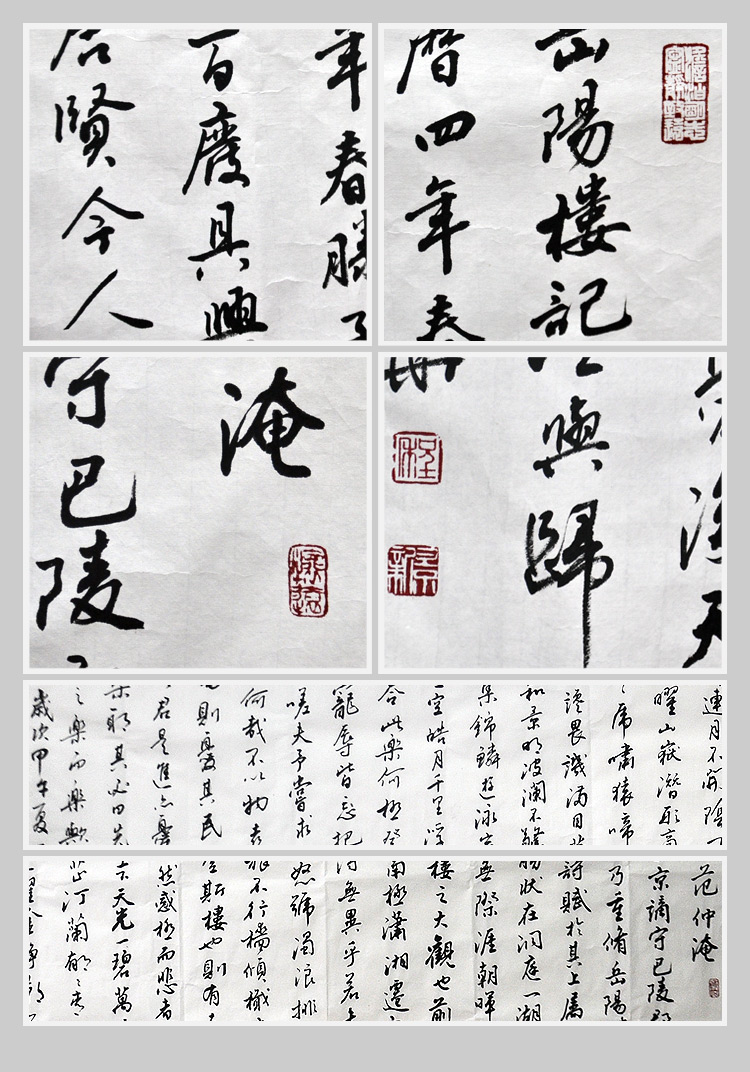 年春勝
百廢具興
賢今人
山陽樓記
曆四年春
淹
守巴陵
天
與歸
連月不開陰
曜山嶽潛形商
虎嘯猿啼
讒畏譏滿目
和景明波瀾不驚
集錦鱗遊泳
空皓月千里浮
合此樂何極登
寵辱皆忘把
嗟夫予嘗求
何哉不以物喜
則憂其民
君是進亦憂
樂耶其必曰先
之樂而樂歟
歲次甲午夏
范仲淹
京謫守巴陵郡
乃重脩岳陽
詩賦於其上屬
勝狀在洞庭一湖
無際涯朝暉
樓之大觀也前
南極瀟湘遷
得無異乎若
怒號濁浪排
旅不行檣傾檝
斯樓也則有
然感極而悲者
天光一碧萬
芷汀蘭郁々青